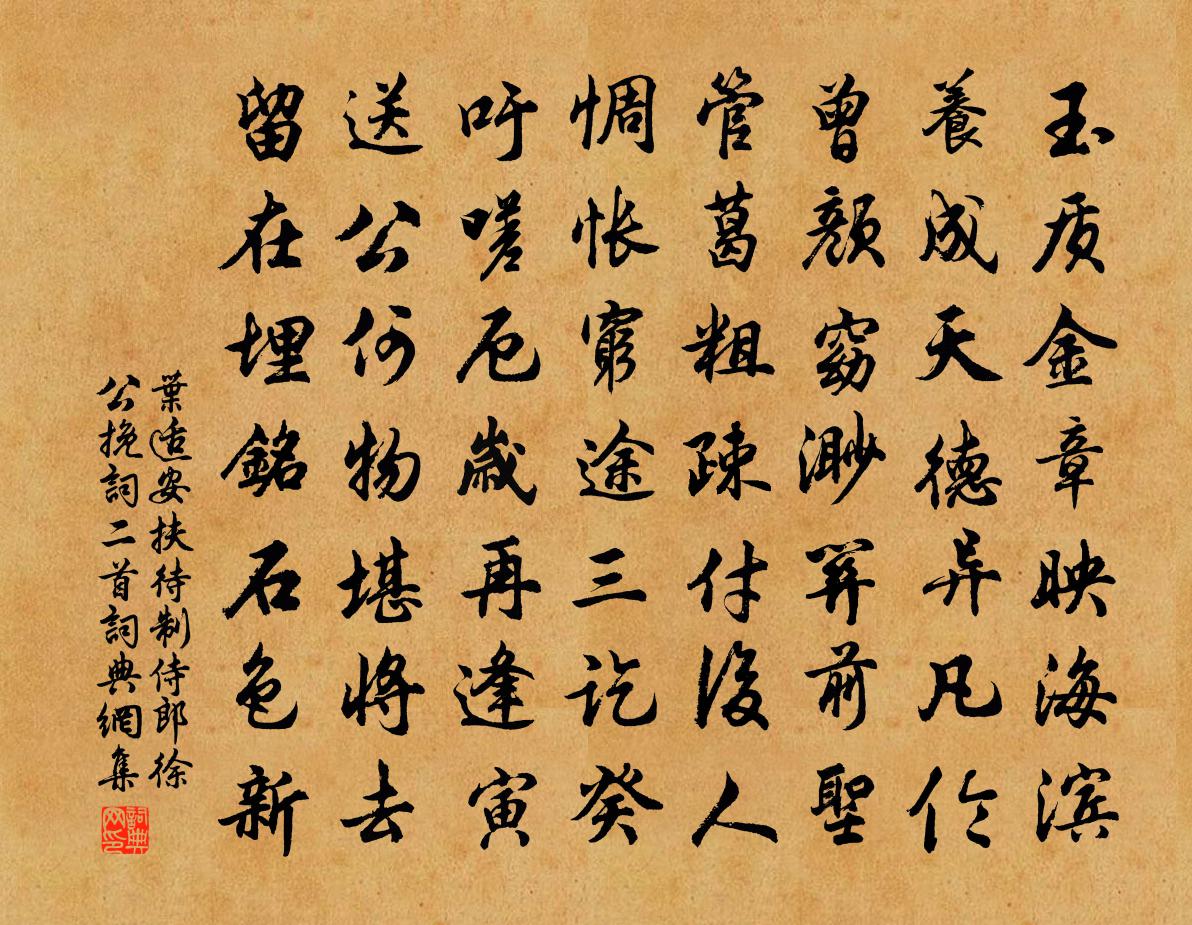 玉质金章映海滨
養成天德异凡伦
曾顏窈渺算前聖
管葛粗疎付後人
惆怅窮途三讫癸
吁嗟厄歲再逢寅
送公何物堪將去
留在埋銘石色新
葉适安扶待制侍郎徐
公挽詞二首詞典網集
詞典
网印